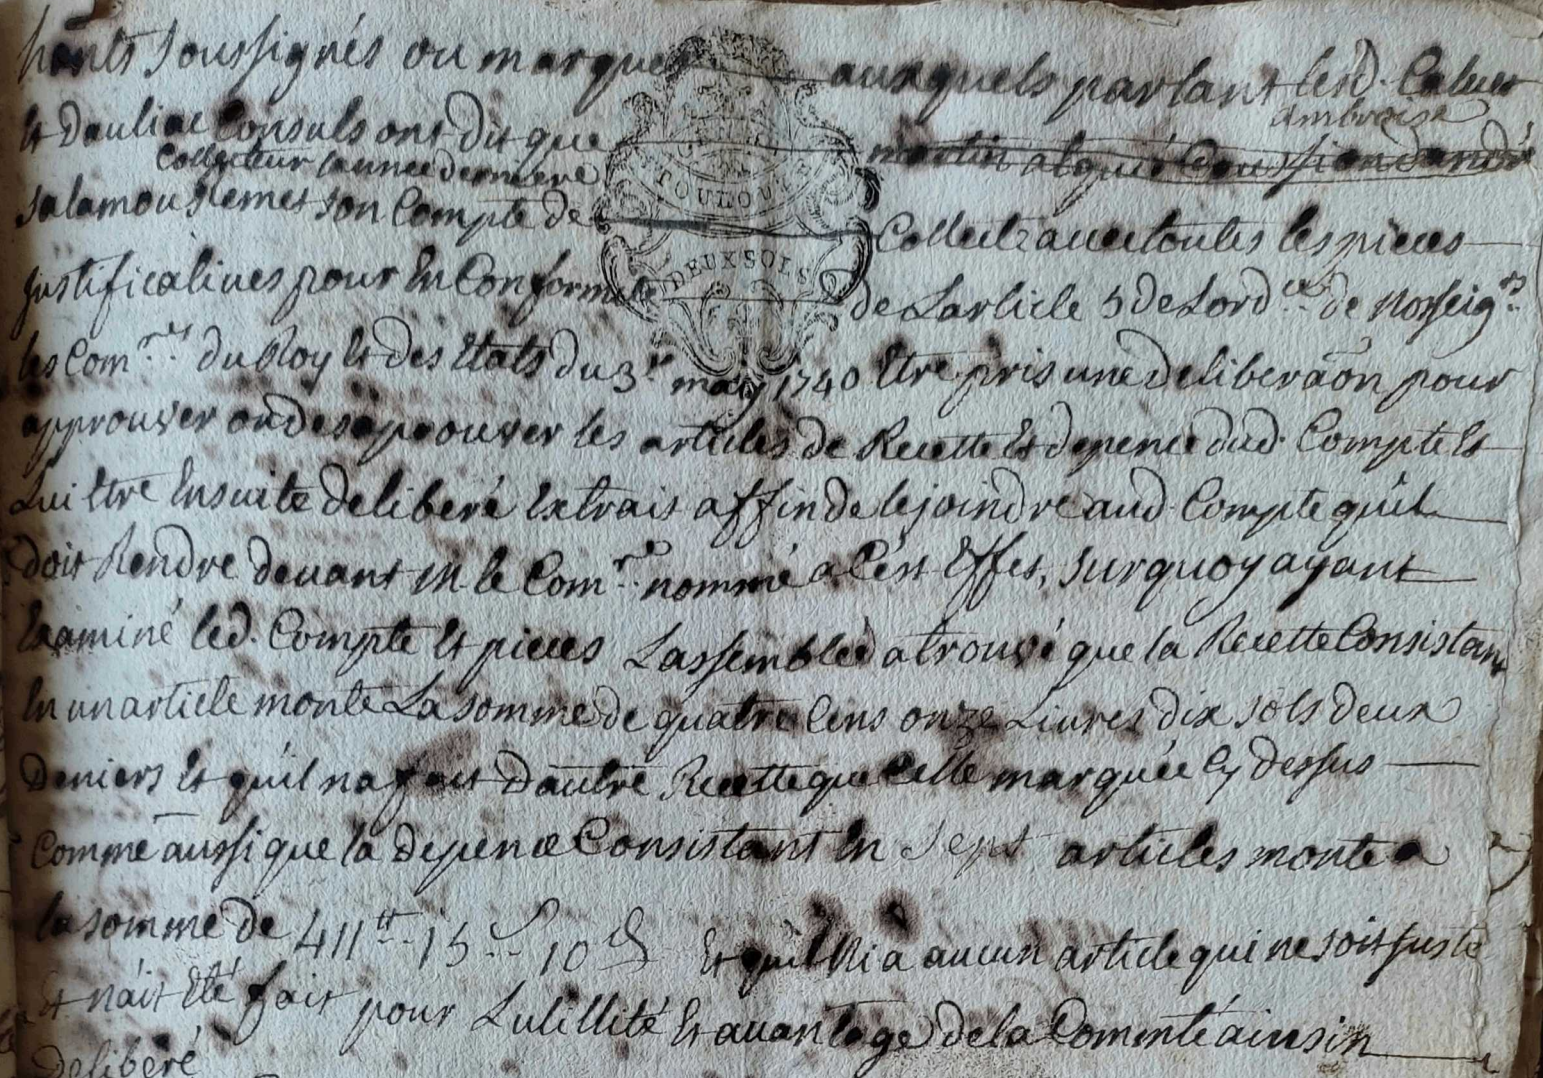 hants soussignés ou marques auxquels parlant lesd. Cabus
Et Dauliac Consuls ont dit que martin alqué
ambroise
Collecteur lannee derniere
Salamou Remet son Compte de Collecte avec toutes les pieces
TOULOUSE
DEUX SOLS
Justificatives pour En Conformité de Larticle 5 de Lord.ce de Nosseig.rs
les Com.res du Roy Et des Etats du 3.e may 1740 Etre pris une deliberãon pour
approuver ou desaprouver les articles de Recette Et depence dud. Compte Et
Lui Etre Ensuite delibéré Extrait affin de le joindre aud. Compte quil
doit Rendre devant M le Com.re nommé a Cet Effet, surquoy ayant
Examiné led. Compte Et pieces Lassemblée a trouvé que la Recette Consistant
En un article monte La somme de quatre Cens onze Livres dix sols deux
Deniers Et quil na fait Dautre Recette que Celle marquée Cy dessus
Comme aussi que la depence Consistant En Sept articles monte a
la somme de 411tt.. 15 s.. 10 d Et quil Ni a aucun article qui ne soit juste
Et nait Eté fait pour Lutillité Et avantage de la Commté ainsin
delibéré